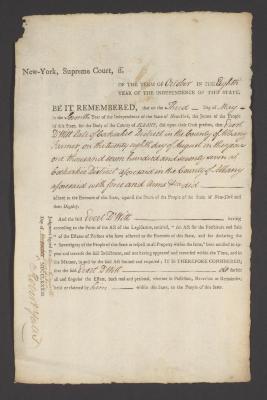 New-York, Supreme Court, ss.
OF THE TERM OF October IN THE Eighth
YEAR OF THE INDEPENDENCE OF THIS STATE.
BE IT REMEMBERED, that on the Third Day of May
in the Seventh Year of the Independence of the State of New-York, the Jurors of the People
of this State, for the Body of the County of ALBANY, did upon their Oath present, that Evert
D Witt late of Coxhackie District in the County of Albany
Farmer, on the twenty eighth day of August in the year
one thousand seven hundred and seventy seven at
Coxhackie District aforesaid in the County of Albany
aforesaid with force and arms &c did
adhere to the Enemies of this State, against the Peace of the People of the State of New-York and
their Dignity.
And the said Evert D Witt having
according to the Form of the Act of the Legislature, entitled, "An Act for the Forfeiture and Sale
"of the Estates of Persons who have adhered to the Enemies of this State, and for declaring the
"Sovereignty of the People of this State in respect to all Property within the same," been notified to appear
and traverse the said Indictment, and not having appeared and traversed within the Time, and in
the Manner, in and by the said Act limited and required; IT IS THEREFORE CONSIDERED,
that the said Evert D Witt do forfeit
all and singular the Estate, both real and personal, whether in Possession, Reversion or Remainder,
held or claimed by him within this State, to the People of this State.